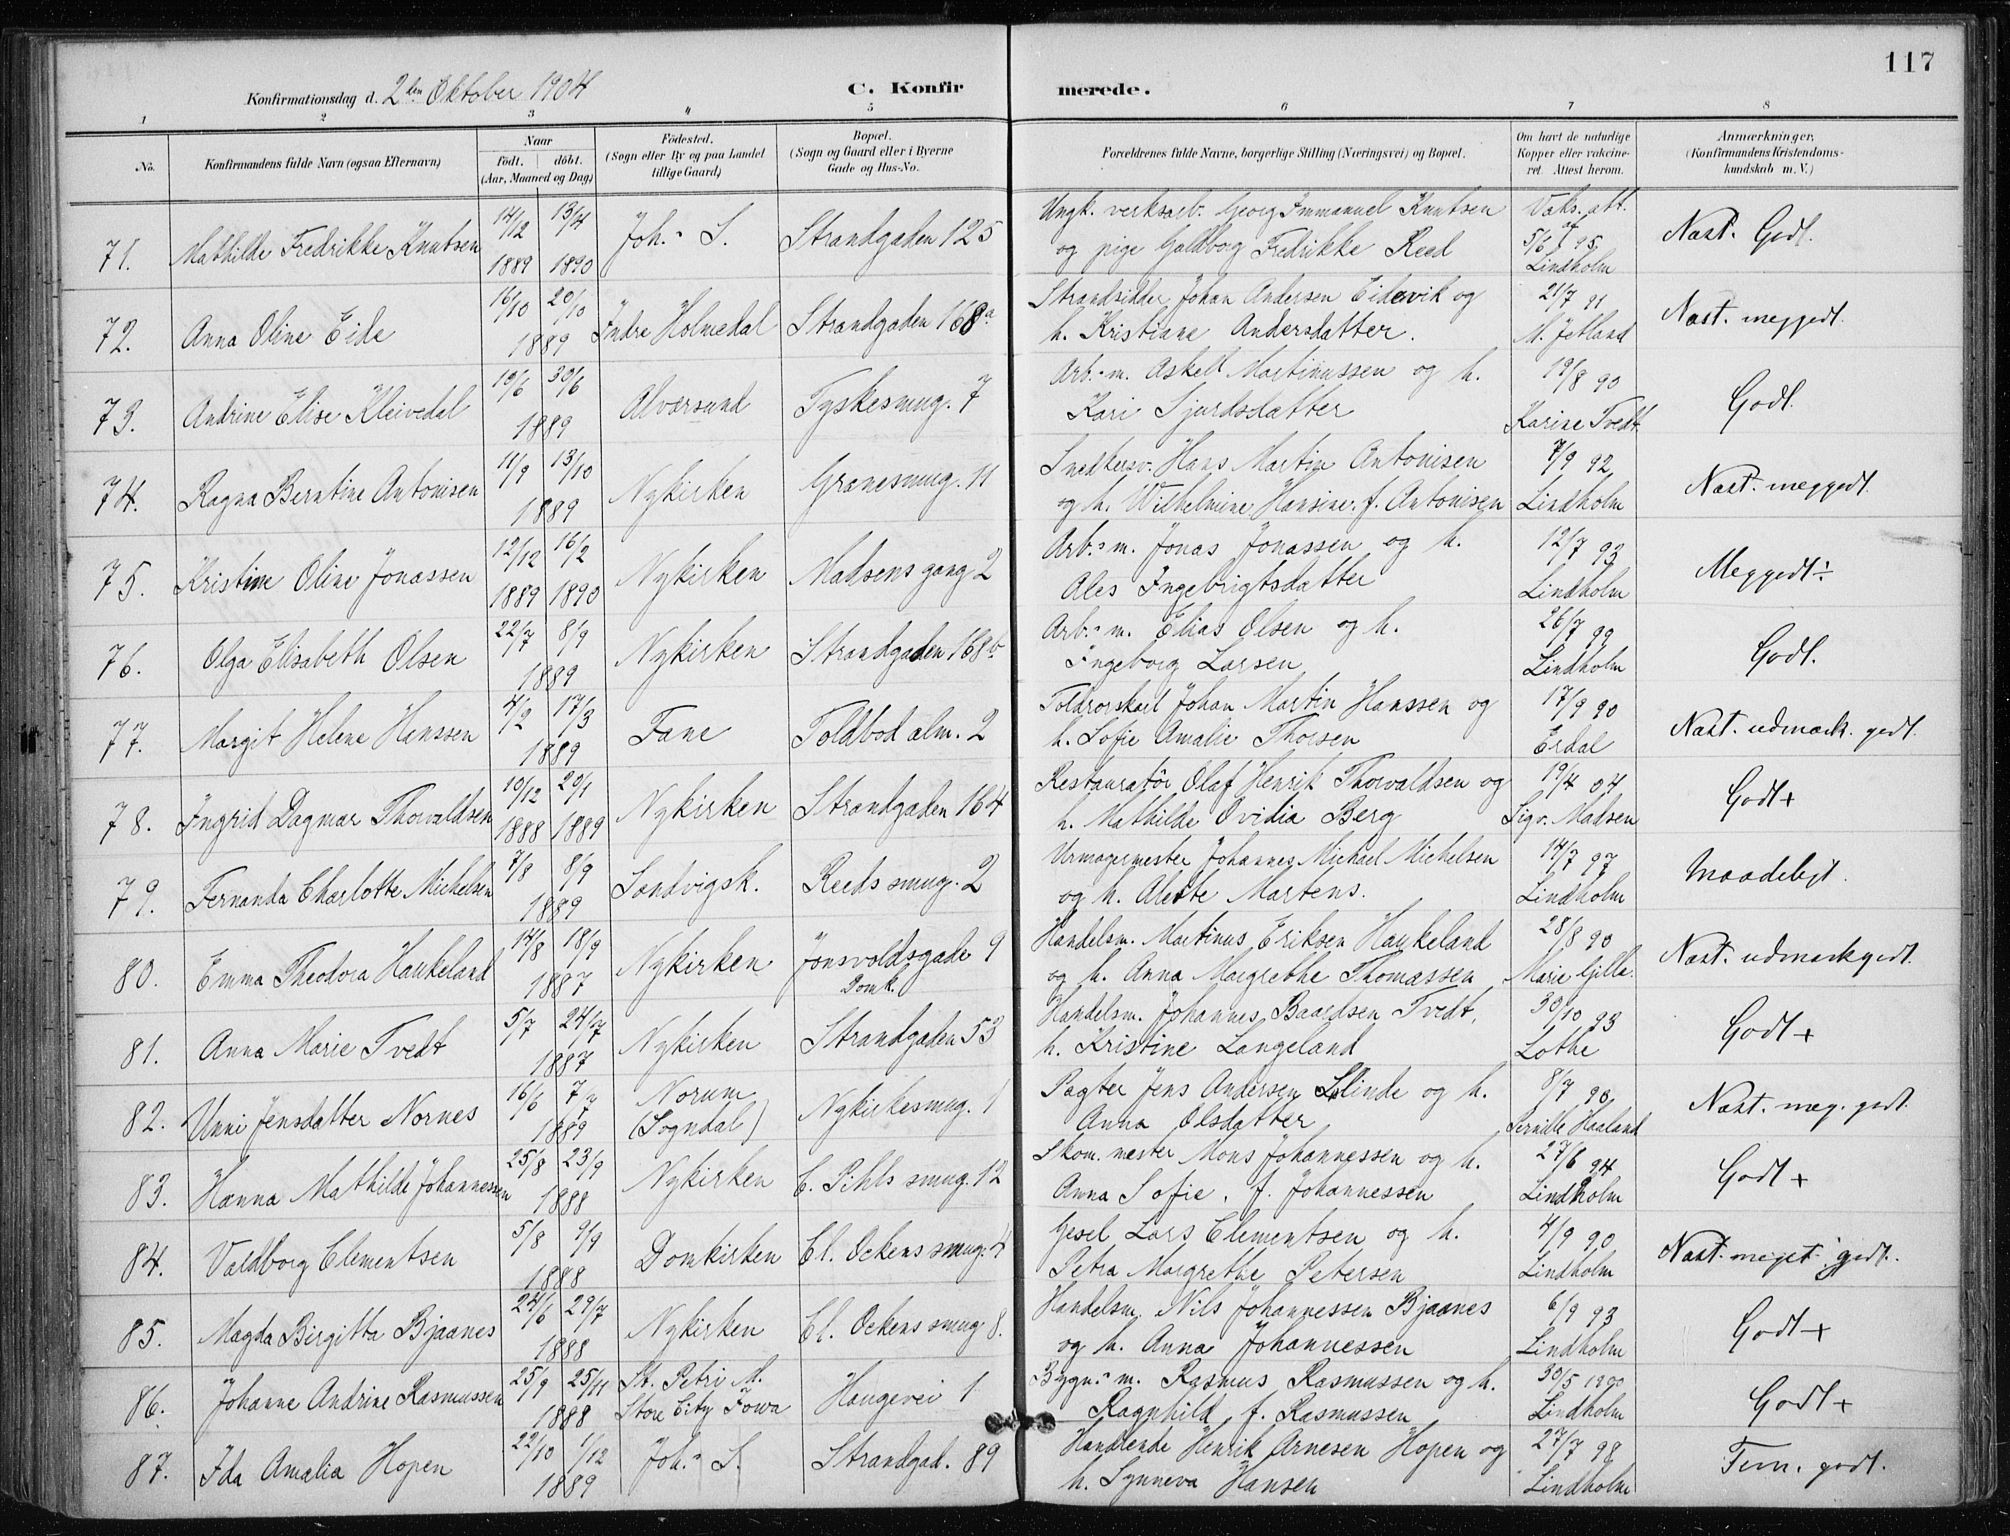 117
Konfirmationsdag d. 2den Oktober 1904
C. Konfirmerede.
1 2 3 4 5 6 7 8
No. Konfirmandens fulde Navn (ogsaa Efternavn) Naar födt. döbt. (Aar, Maaned og Dag) Födested. (Sogn eller By og paa Landet tillige Gaard) Bopæl. (Sogn og Gaard eller i Byerne Gade og Hus-No. Forældrenes fulde Navne, borgerlige Stilling (Næringsvei) og Bopæl. Om havt de naturlige Kopper eller vakcineret. Attest herom. Anmærkninger, (Konfirmandens Kristendomskundskab m. V.)
71. Mathilde Fredrikke Knutsen 14/12 1889 13/4 1890 Joh.s S. Strandgaden 125 Ungk. verksarb. Georg Immanuel Knutsen
og pige Goldborg Fredrikke Reed Vaks. att. af 5/6 95. Lindholm Næst. Godt.
72. Anna Oline Eide 16/10 20/10 1889 Indre Holmedal Strandgaden 168a Strandsidder Johan Andersen Eidevik og
h. Kristiane Andersdatter. 21/7 91 M. Jetland Næst. meg.godt.
73. Andrine Elise Kleivedal 10/6 30/6 1889 Alversund Tyskesmug. 7 Arb.m. Askell Martinussen og h.
Kari Sjurdsdatter 19/8 90 Karine Tvedt Godt.
74. Ragna Berntine Antonisen 11/9 13/10 1889 Nykirken Granesmug. 11 Snedkersv. Hans Martin Antonisen
og h. Wilhelmine Hansine f. Antonisen 7/9 92 Lindholm Næst. meg godt.
75. Kristine Oline Jonassen 12/12 1889 16/2 1890 Nykirken Madsens gang 2 Arb.m. Jonas Jonassen og h.
Ales Ingebrigtsdatter 12/7 93 Lindholm Meg godt ÷
76. Olga Elisabeth Olsen 22/7 8/9 1889 Nykirken Strandgaden 168b Arb.m. Elias Olsen og h.
Ingeborg Larsen 26/7 99 Lindholm Godt.
77. Margit Helene Hanssen 4/2 17/3 1889 Fane Toldbod alm. 2 Toldrorskarl Johan Martin Hanssen og
h. Sofie Amalie Thorsen 17/9 90 Erdal Næst. udmærk. godt.
78. Ingrid Dagmar Thorvaldsen 10/12 1888 20/1 1889 Nykirken Strandgaden 164 Restauratör Olaf Henrik Thorvaldsen og
h. Mathilde Ovidia Berg 19/4 04 Sigv. Madsen Godt +
79. Fernanda Charlotte Michelsen 7/8 8/9 1889 Sandvigsk. Reeds smug. 2 Urmagermester Johannes Michael Michelsen
og h. Alette Martens. 14/7 97 Lindholm Maadeligt.
80. Emma Theodora Haukeland 14/8 18/9 1887 Nykirken Jonsvoldsgade 9 Domk. Handelsm. Martinus Eriksen Haukeland
og h. Anna Margrethe Thomassen 28/8 90 Marie Gille Næst. udmærk godt.
81. Anna Marie Tvedt 5/7 24/7 1887 Nykirken Strandgaden 53 Handelsm. Johannes Baardsen Tvedt,
h. Kristine Langeland 30/10 93 Lothe Godt +
82. Unni Jensdatter Nornes 16/6 7/7 1889 Norum (Sogndal) Nykirkesmug. 1 Pagter Jens Andersen Slinde og h.
Anna Olsdatter 8/7 90 Haaland Næst. meg. godt.
83. Hanna Mathilde Johannessen 25/8 23/9 1888 Nykirken C. Pihls smug. 12 Skom. mester Mons Johannessen og h.
Anna Sofie. f. Johannessen 27/6 94 Lindholm Godt +
84. Valdborg Clementsen 5/8 9/9 1888 Domkirken Cl. Ockens smug. 4 Gesel Lars Clementsen og h.
Petra Margrethe Petersen 4/9 90 Lindholm Næst. meget godt.
85. Magda Birgitta Bjaanes 24/6 29/7 1888 Nykirken Cl. Ockens smug 8. Handelsm. Nils Johannessen Bjaanes
og h. Anna Johannessen 6/9 93 Lindholm Godt +
86. Johanne Andrine Rasmussen 25/9 25/11 1888 St. Petri M. Store City Iowa Haugevei 1 Bygn.m. Rasmus Rasmussen og h.
Ragnhild f. Rasmussen 30/5 1890 Lindholm Godt +
87. Ida Amalia Hopen 22/10 1/12 1889 Joh.s S. Strandgad. 89 Handlende Henrik Arnesen Hopen og
h. Synneva Hansen 27/7 98 Lindholm Tem. godt.